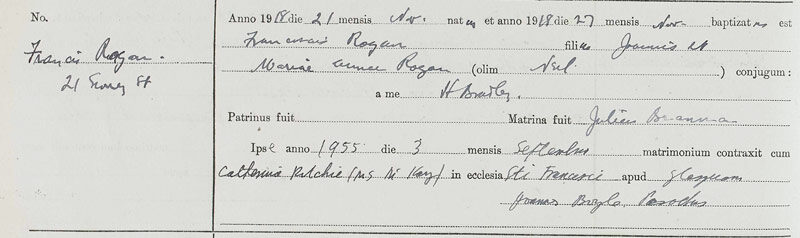 No.
Francis Rogan.
21 St
Anno 1918 die 21 mensis Nov. natus et anno 1918 die 27 mensis Nov. baptizatus est
Franciscus Rogan filius Joannis et
Mariae Annae Rogan (olim ) conjugum :
a me H Bradley.
Patrinus fuit Matrina fuit Brannan
Ipse anno 1955 die 3 mensis Septembris matrimonium contraxit cum
Catherine Ritchie (ms Mc Kay) in ecclesia Sti Francisci apud Glasguam
Joannes Boyle, Parochus